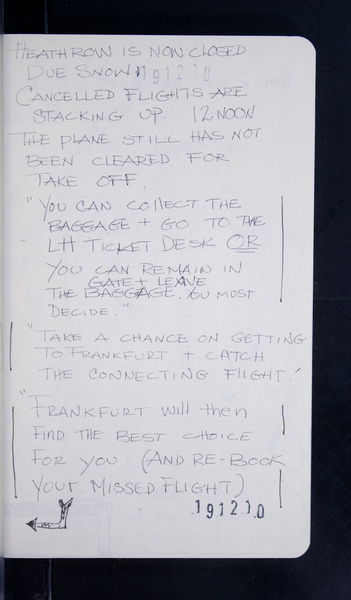 HEATHROW IS NOW CLOSED
DUE SNOW! 191210
CANCELLED FLIGHTS ARE
STACKING UP 12 NOON
THE PLANE STILL HAS NOT
BEEN CLEARED FOR
TAKE OFF.
"YOU CAN COllECT THE
BAGGAGE + GO TO THE
LH TICKET DESK OR
YOU CAN REMAIN IN
GATE + LEAVE
THE BAGGAGE. YOU MUST
DECIDE."
"TAKE A CHANCE ON GETTING
TO FRANKFURT + CATCH
THE CONNECTING FLIGHT!
"FRANKFURT Will then
FIND THE BEST CHOICE
FOR YOU. (AND RE-BOOK
YOUR MISSED FLIGHT)
191210